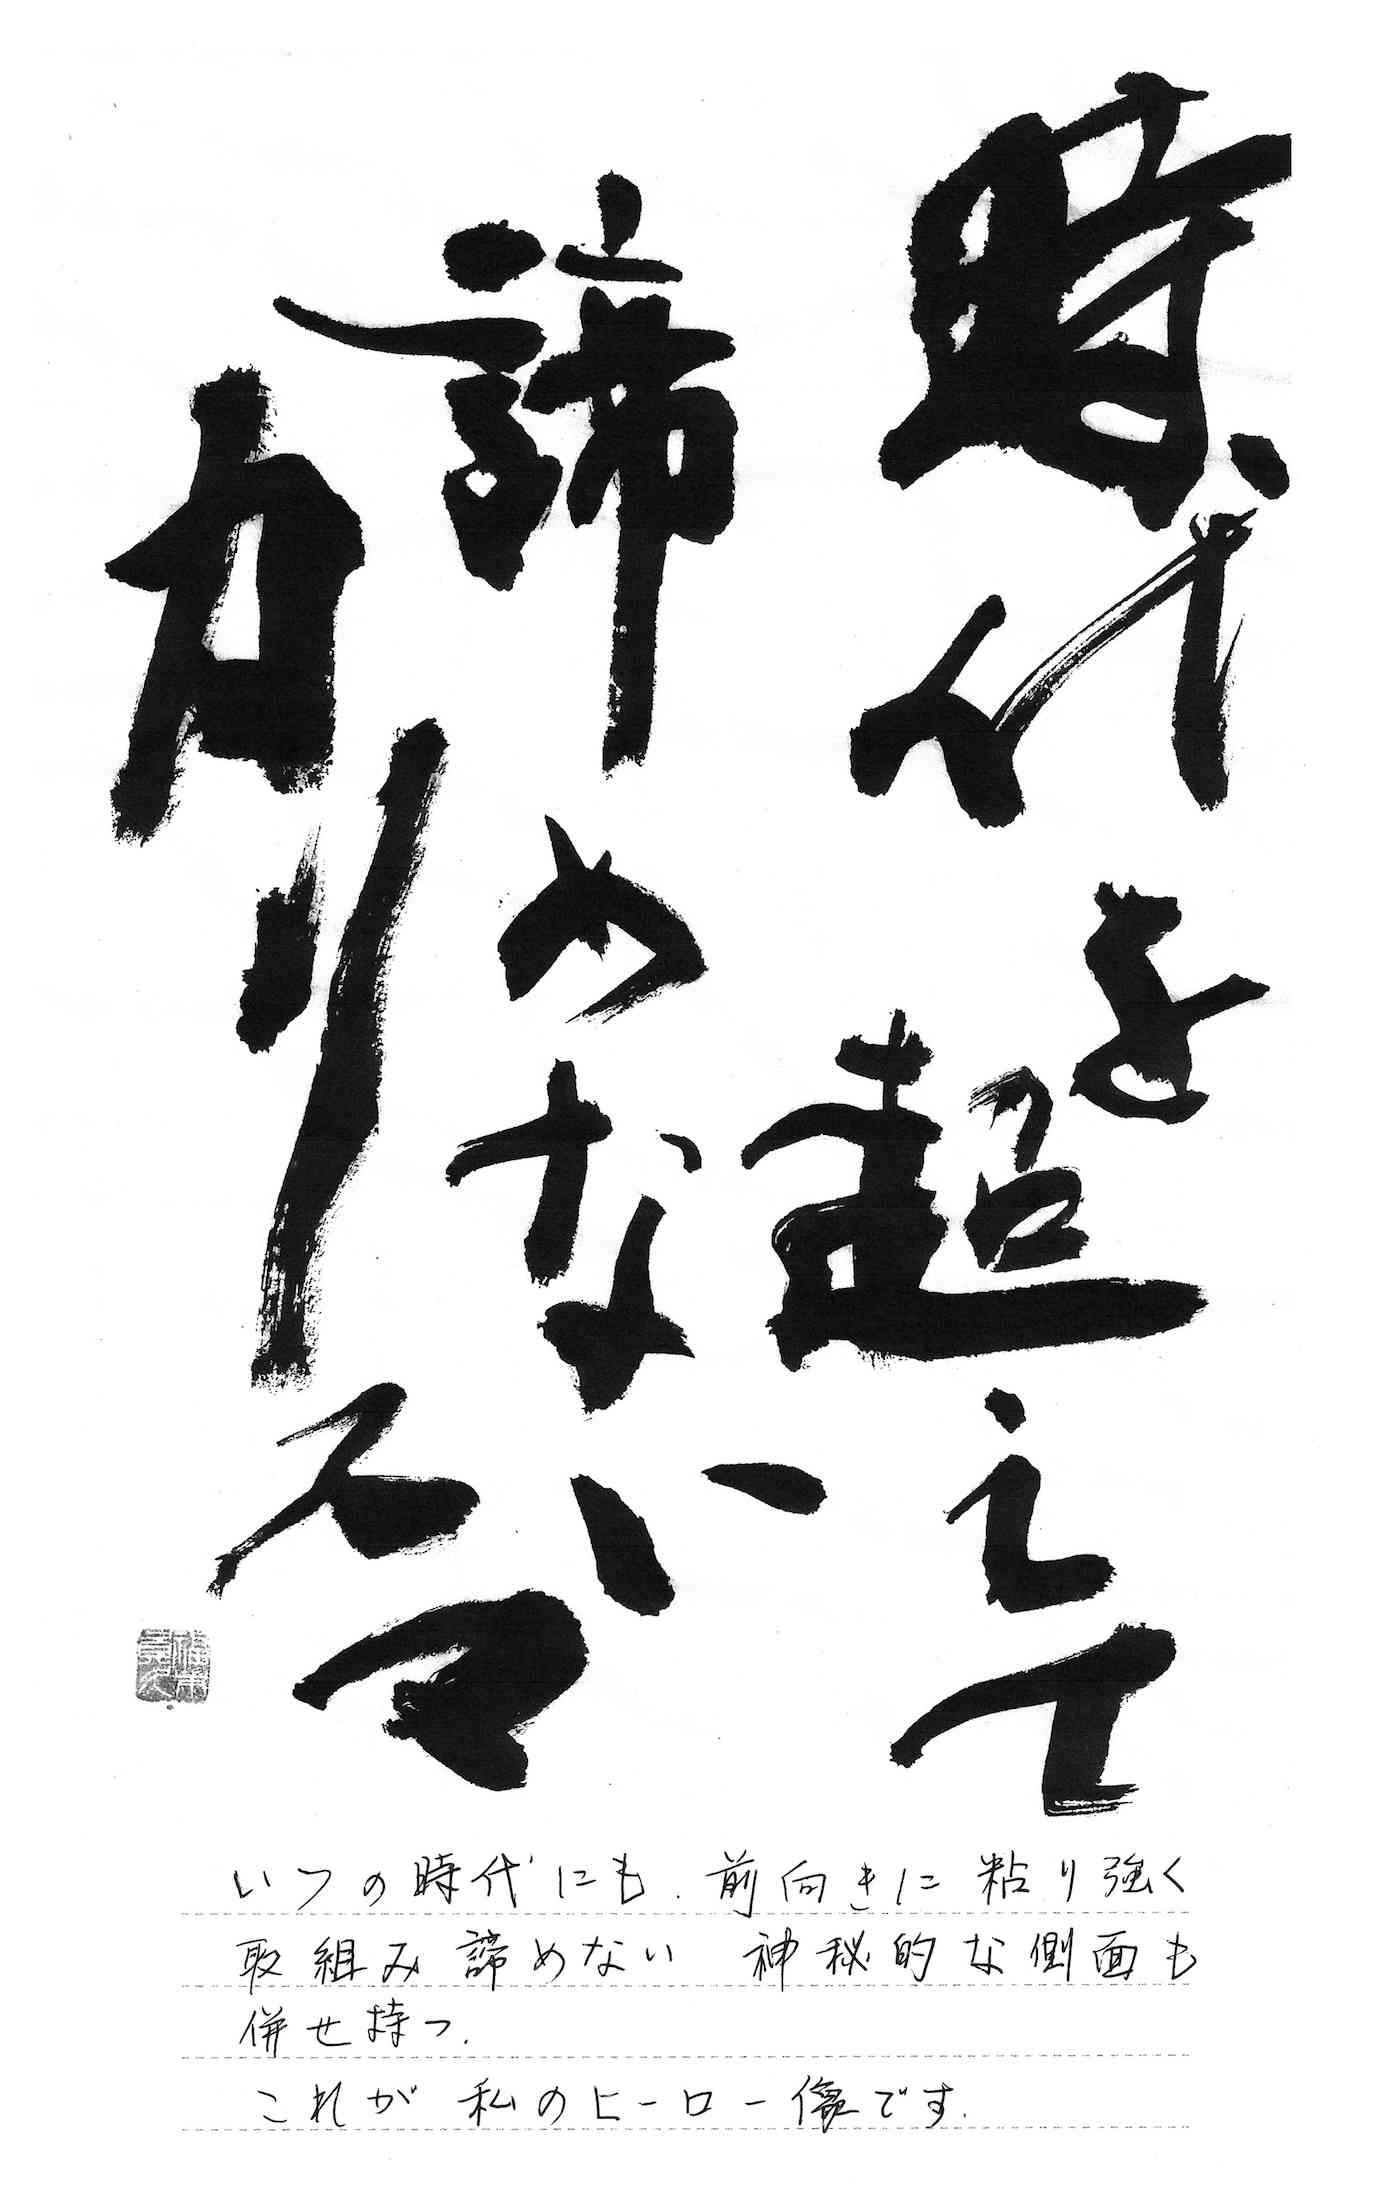 時代を超えて
諦めない
カリスマ
いつの時代にも、前向きに粘り強く
取組み諦めない 神秘的な側面も
併せ持つ。
これが 私のヒーロー像です。